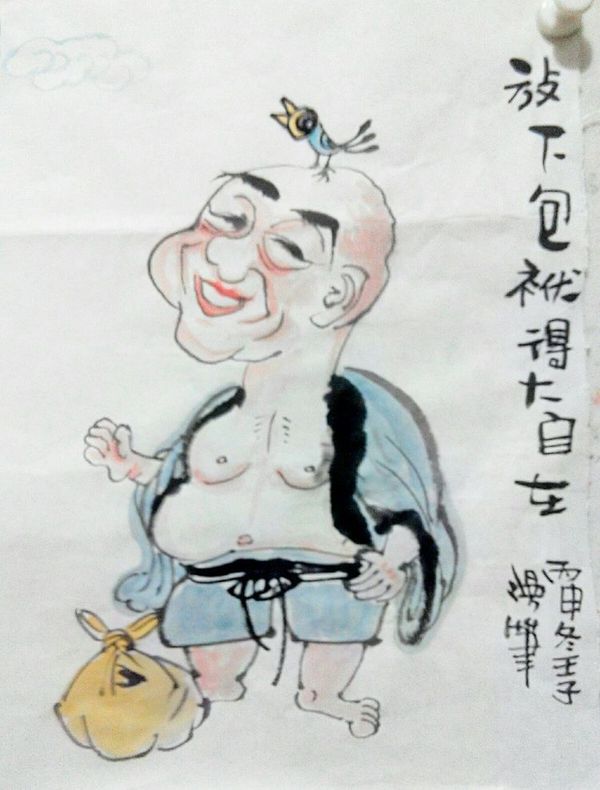 放下包袱得大自在
丙申冬王子
漫筆